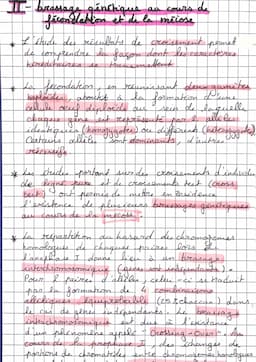 II - brassage génétique au cours de
fécondation et de la méiose
* L'étude des résultats de croisement permet
de comprendre la façon dont les caractères
héréditaires se transmettent
* La fécondation, en réunissant deux gamètes
haploïdes, aboutit à la formation d'une
cellule œuf diploïde au sein de laquelle
chaque gène est représenté par 2 allèles
identiques (homozygotes) ou différents (hétérozygotes)
Certains allèles sont dominants, d'autres
récessifs
* Les études portant sur des croisements d'individus
de lignée pure et de croisements test (cross
test) ont permis de mettre en évidence
l'existence de plusieurs brassages génétiques
au cours de la méiose.
* La répartition au hasard des chromosomes
homologues de chaque paires lors de
l'anaphase I donne lieu à un brassage
interchromosomique (gènes indépendants).
Pour 2 paires d'allèles, celle-ci se traduit
par la formation de 4 combinaisons
alléliques équiprobables (25% chacun) dans
le cas de gènes indépendants. Le brassage
intrachromosomique est dû à l'existence
d'un phénomène appelé Crossing-Over. Au
cours de la prophase I, des échanges de
portions de chromatides entre chromosomes homologues